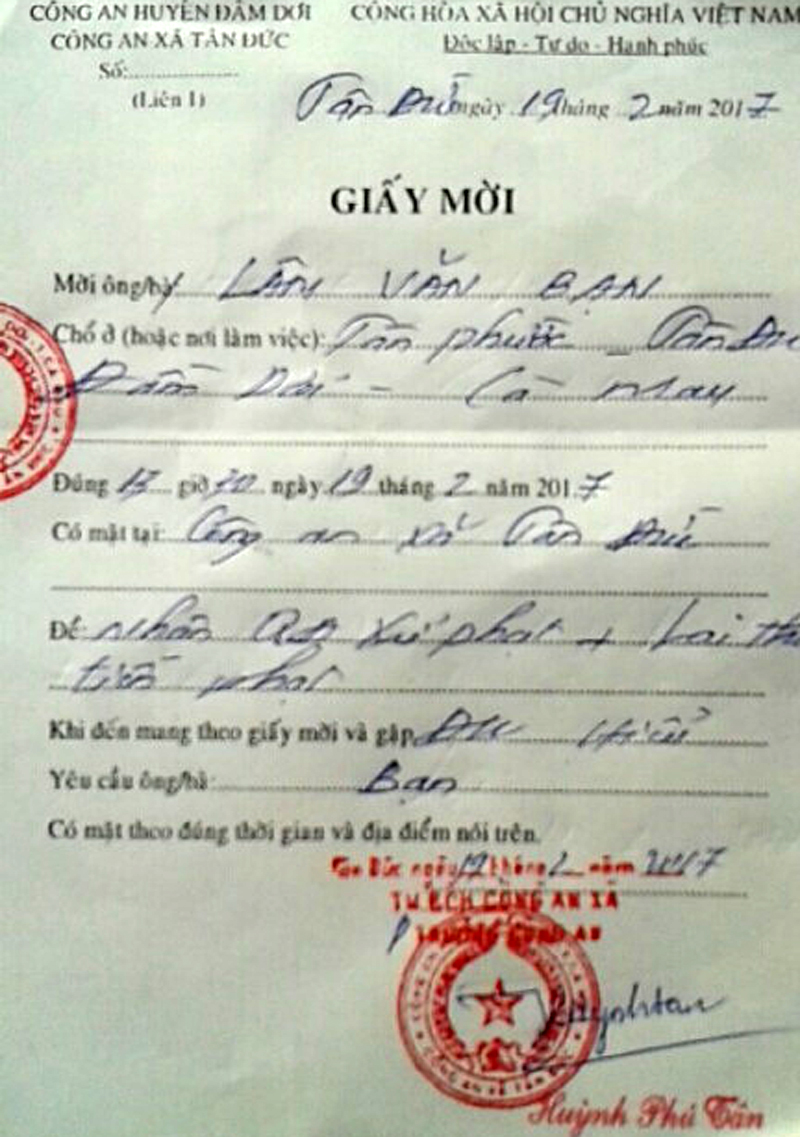 CÔNG AN HUYỆN ĐẦM DƠI CỘNG HÒA XÃ HỘI CHỦ NGHĨA VIỆT NAM
CÔNG AN XÃ TÂN ĐỨC Độc lập - Tự do - Hạnh phúc
Số:
(Liên 1)
Tân Đức ngày 19 tháng 2 năm 2017
GIẤY MỜI
Mời ông/bà LÂM VĂN BẠN
Chổ ở (hoặc nơi làm việc): Tân phước - Tân Đức
Đầm Dơi - Cà Mau
Đúng 13 giờ 30 ngày 19 tháng 2 năm 2017
Có mặt tại: Công an xã Tân Đức
Để nhận QĐ xử phạt +
tiền phạt
Khi đến mang theo giấy mời và gặp
Yêu cầu ông/bà: Bạn
Có mặt theo đúng thời gian và địa điểm nói trên.
Tân Đức ngày 19 tháng 2 năm 2017
CÔNG AN XÃ
TRƯỞNG CÔNG AN
Huỳnh Phú Tân